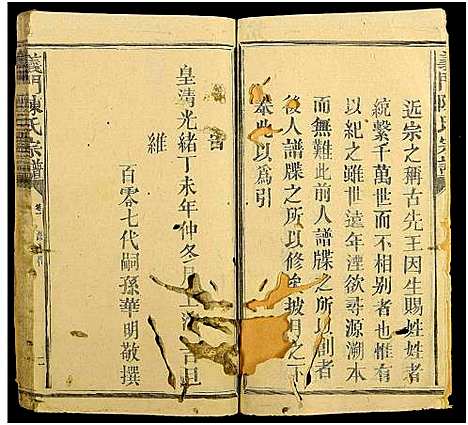 義門陳氏宗譜
近宗之稱古先王因生賜姓姓者
統繫千萬世而不相別者也惟有
以紀之雖世遠年湮欲尋源溯本
而無難此前人譜牒之所以創者
後人譜牒之所以修矣披月之下
泰此以為引
峕
皇清光緒丁未年仲冬月上浣吉旦
維
百零七代嗣孫華明敬撰
義門陳氏宗譜